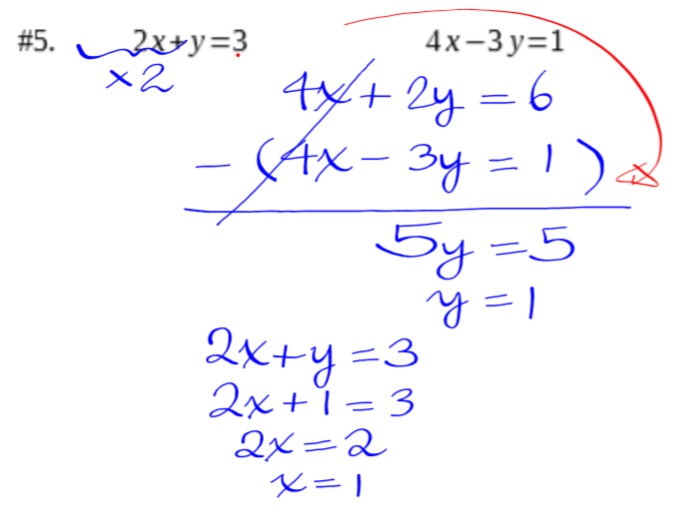 #5. 2x+y=3 4x−3y=1
×2
4x + 2y = 6
− (4x − 3y = 1)
5y = 5
y = 1
2x+y = 3
2x + 1 = 3
2x = 2
x = 1